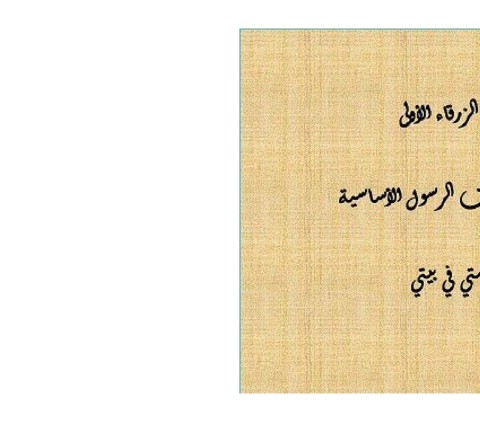 الزرقاء الأولى
الرسول الأساسية
في بيتي